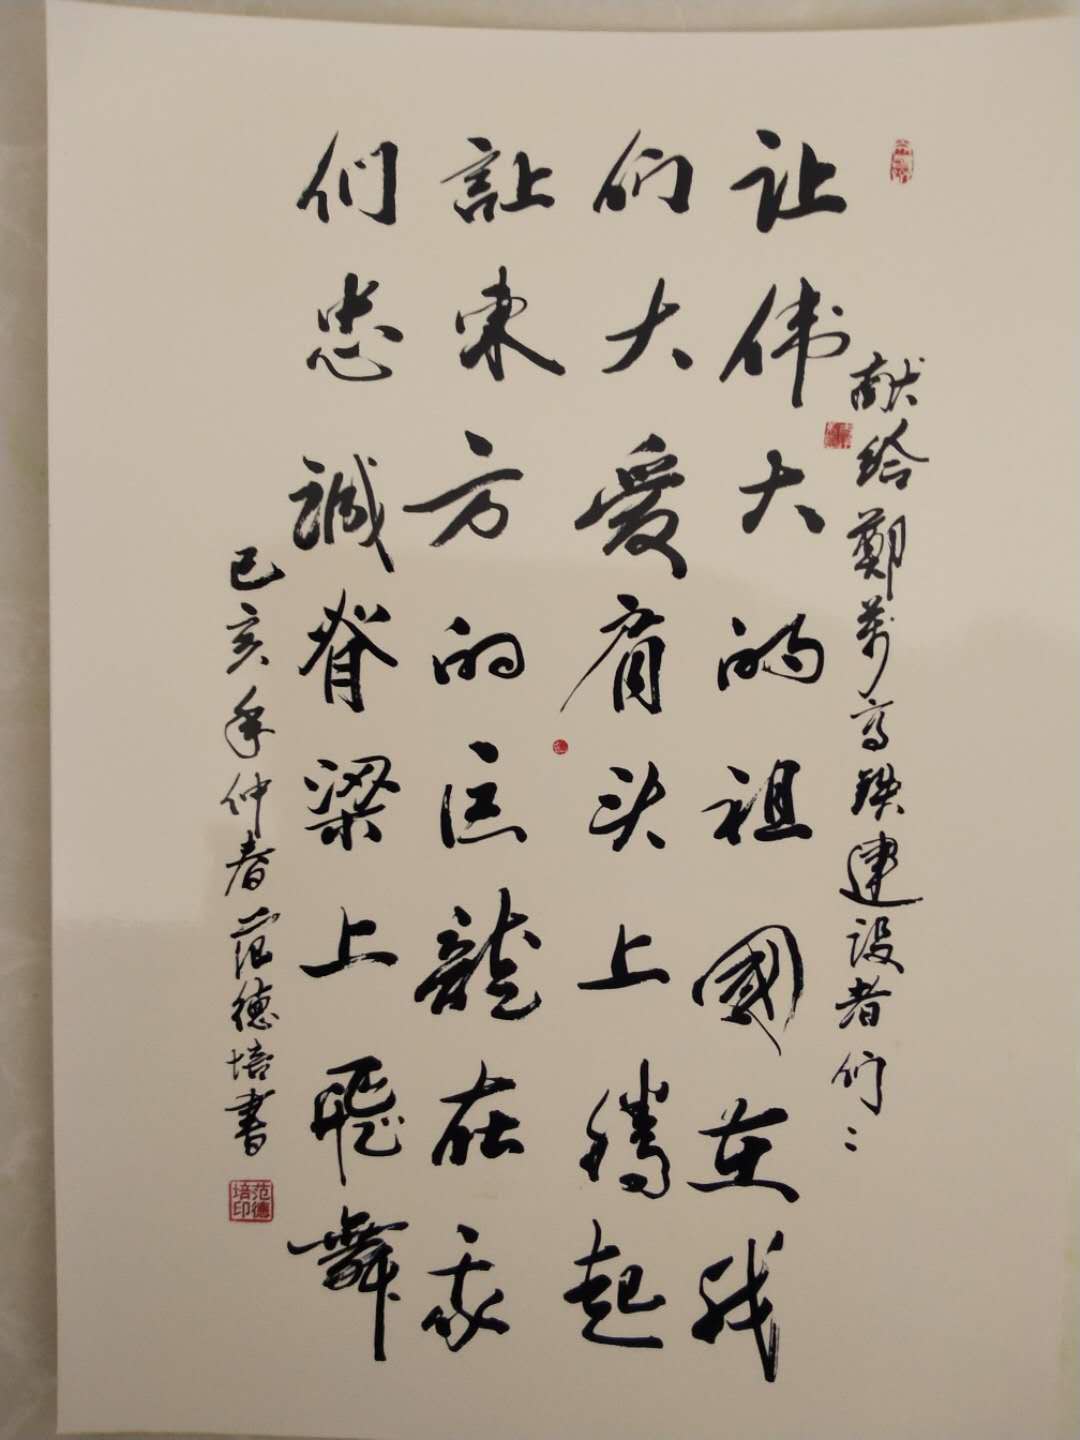 献给鄭萬高铁建设者们：
让伟大的祖國在我
们大爱肩头上腾起
讓东方的巨龍在我
们忠誠脊梁上飛舞
已亥年仲春范德培書
范德培印